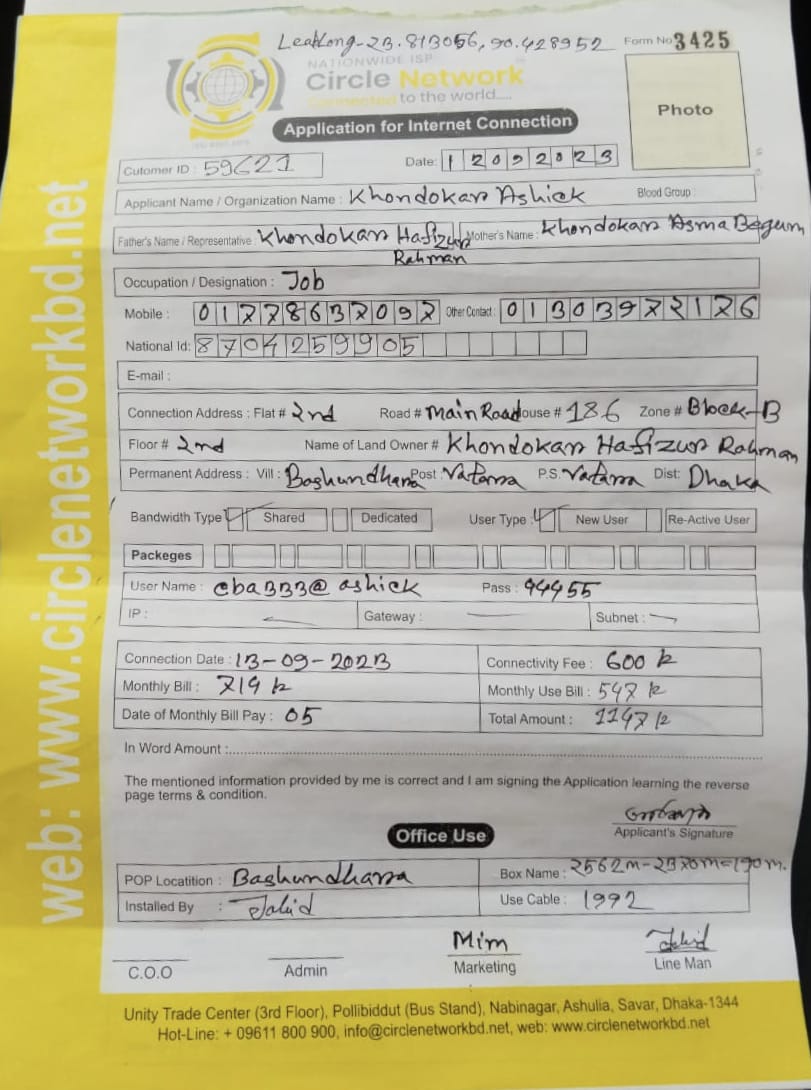 LeatLong-23.813056, 90.428952 Form No 3425
NATIONWIDE ISP
Circle Network
Connected to the world.....
Photo
Application for Internet Connection
Cutomer ID : 59621 Date: 12092023
Applicant Name / Organization Name : Khondokar Ashick Blood Group :
Father's Name / Representative : Khondokar Hafizur Rahman Mother's Name : Khondokar Asma Begum
Occupation / Designation : Job
Mobile : 01778637097 Other Contact : 01303972176
National Id: 8704259905
E-mail :
Connection Address : Flat # 2nd Road # Main Road House # 186 Zone # Block-B
Floor # 2nd Name of Land Owner # Khondokar Hafizur Rahman
Permanent Address : Vill : Bashundhara Post : Vatara P.S. Vatara Dist: Dhaka
Bandwidth Type Shared Dedicated User Type : New User Re-Active User
Packeges
User Name : cba333@ashick Pass : 94455
IP : Gateway : Subnet :
Connection Date : 13-09-2023 Connectivity Fee : 600 tk
Monthly Bill : 719 tk Monthly Use Bill : 547 tk
Date of Monthly Bill Pay : 05 Total Amount : 1147 tk
In Word Amount :
The mentioned information provided by me is correct and I am signing the Application learning the reverse
page terms & condition.
Applicant's Signature
Office Use
POP Locatition : Bashundhara Box Name : 2562m-2370m=190m.
Installed By : Jahid Use Cable : 1992
Mim Jahid
C.O.O Admin Marketing Line Man
Unity Trade Center (3rd Floor), Pollibiddut (Bus Stand), Nabinagar, Ashulia, Savar, Dhaka-1344
Hot-Line: + 09611 800 900, info@circlenetworkbd.net, web: www.circlenetworkbd.net
web: www.circlenetworkbd.net